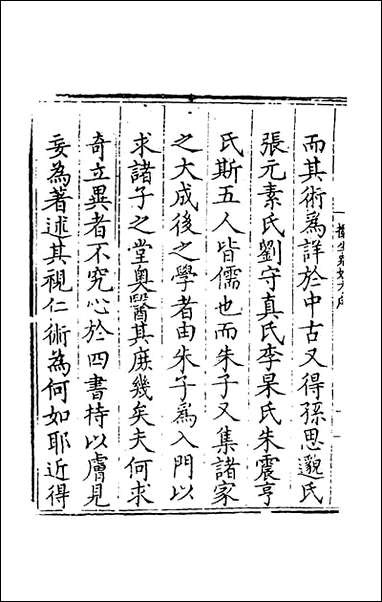 而其術爲詳於中古又得孫思邈氏
張元素氏劉守真氏李杲氏朱震亨
氏斯五人皆儒也而朱子又集諸家
之大成後之學者由朱子爲入門以
求諸子之堂奧醫其庶幾矣夫何求
奇立異者不究心於四書持以膚見
妄為著述其視仁術為何如耶近得